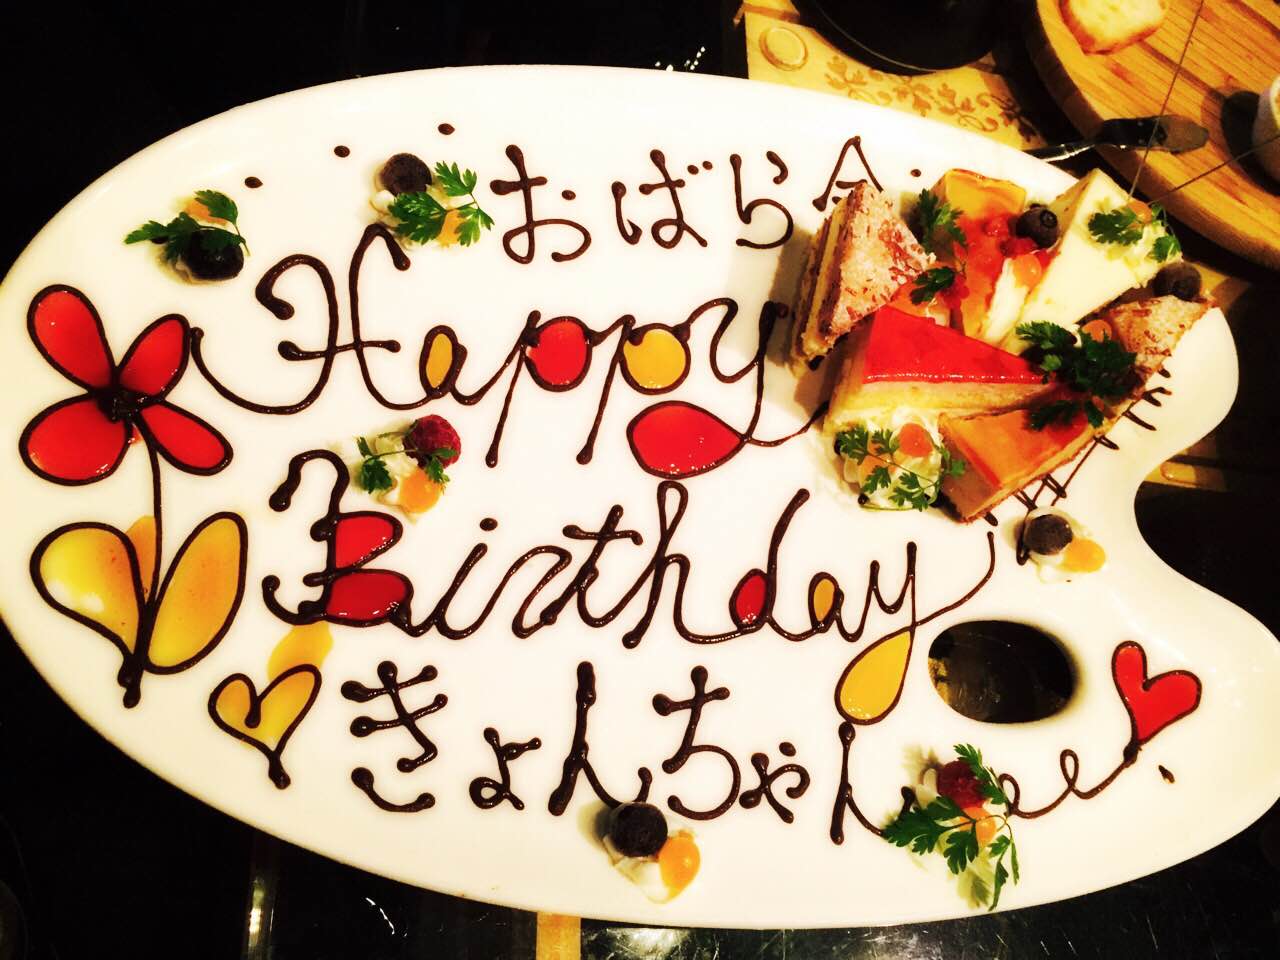 おばら会
Happy
Birthday
きょんちゃん